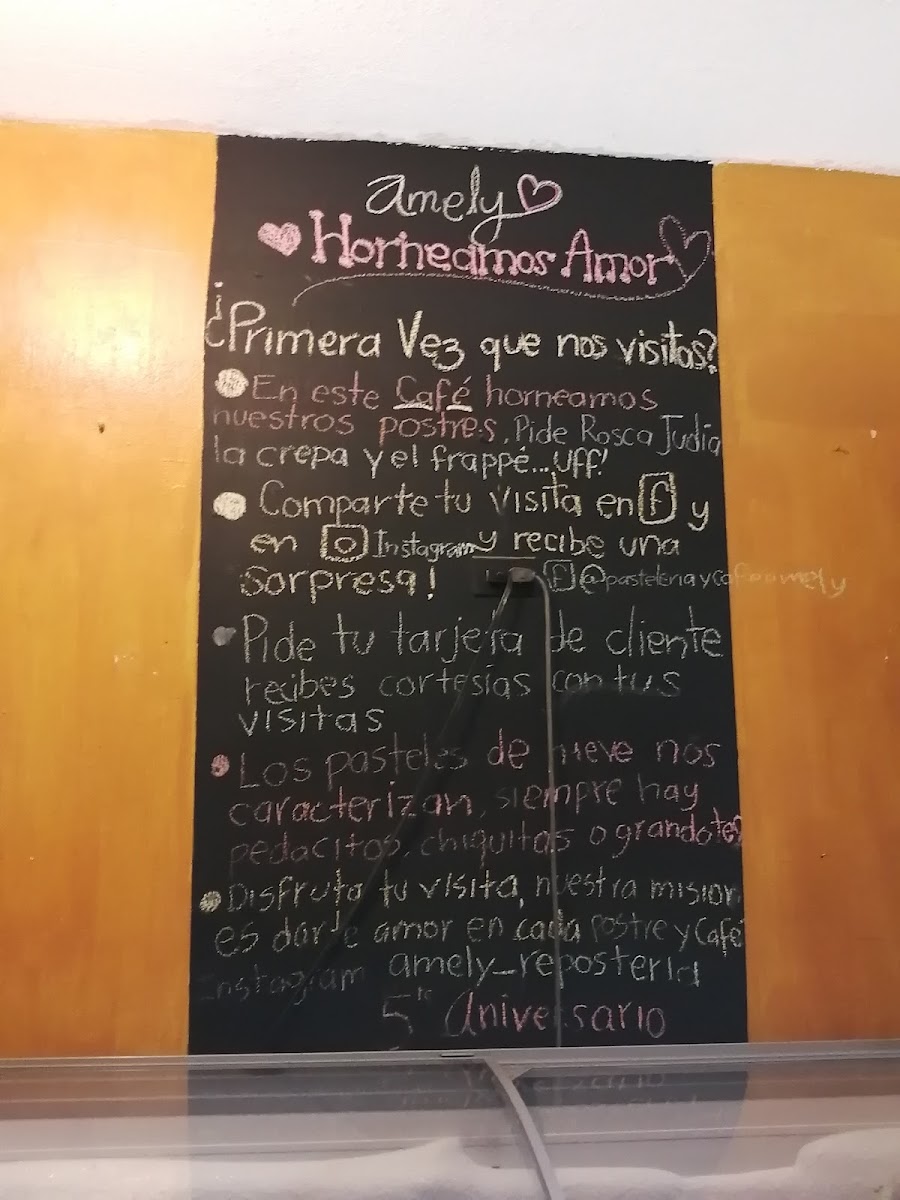 amely
Horneamos Amor
¿Primera Vez que nos visitas?
En este Café horneamos
nuestros postres. Pide Rosca Judía
la crepa y el frappé... uff!
Comparte tu visita en f y
en Instagram y recibe una
Sorpresa! f @pasteleriaycafeamely
Pide tu tarjeta de cliente
recibes cortesías con tus
visitas
Los pasteles de nieve nos
caracterizan, siempre hay
pedacitos, chiquitos o grandotes
Disfruta tu visita, nuestra misión
es darte amor en cada postre y Café
Instagram amely_reposteria
5to Aniversario